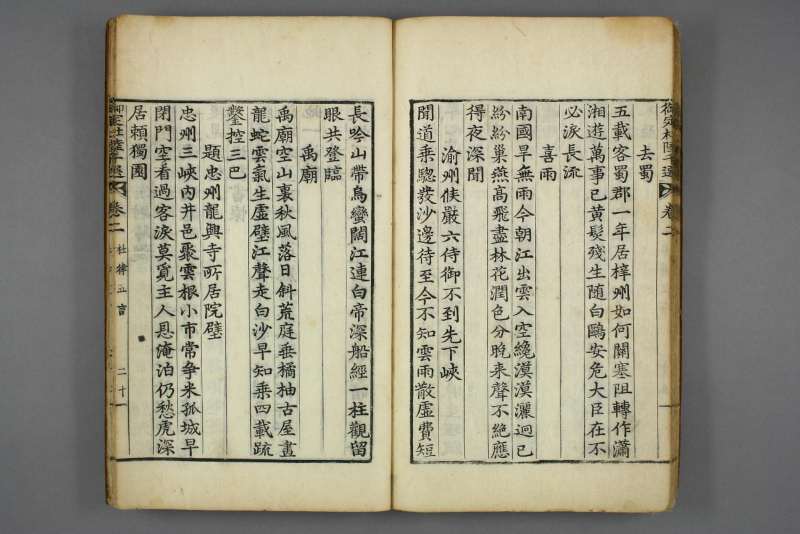 卷二
去蜀
五載客蜀郡一年居梓州如何關塞阻轉作瀟
湘遊萬事已黃髮殘生隨白鷗安危大臣在不
必淚長流
喜雨
南國旱無雨今朝江出雲入空纔漠漠灑迥已
紛紛巢燕高飛盡林花潤色分晚来聲不絶應
得夜深聞
渝州候嚴六侍御不到先下峽
聞道乘驄發沙邊待至今不知雲雨散虛費短
長吟山帶烏蠻闊江連白帝深船經一柱觀留
眼共登臨
禹廟
禹廟空山裏秋風落日斜荒庭垂橘柚古屋畫
龍蛇雲氣生虛壁江聲走白沙早知乘四載疏
鑿控三巴
題忠州龍興寺所居院壁
忠州三峽內井邑聚雲根小市常争米孤城早
閉門空看過客淚莫覓主人恩淹泊仍愁虎深
居頼獨園
御定杜陸千選 卷二 杜律五言 二十